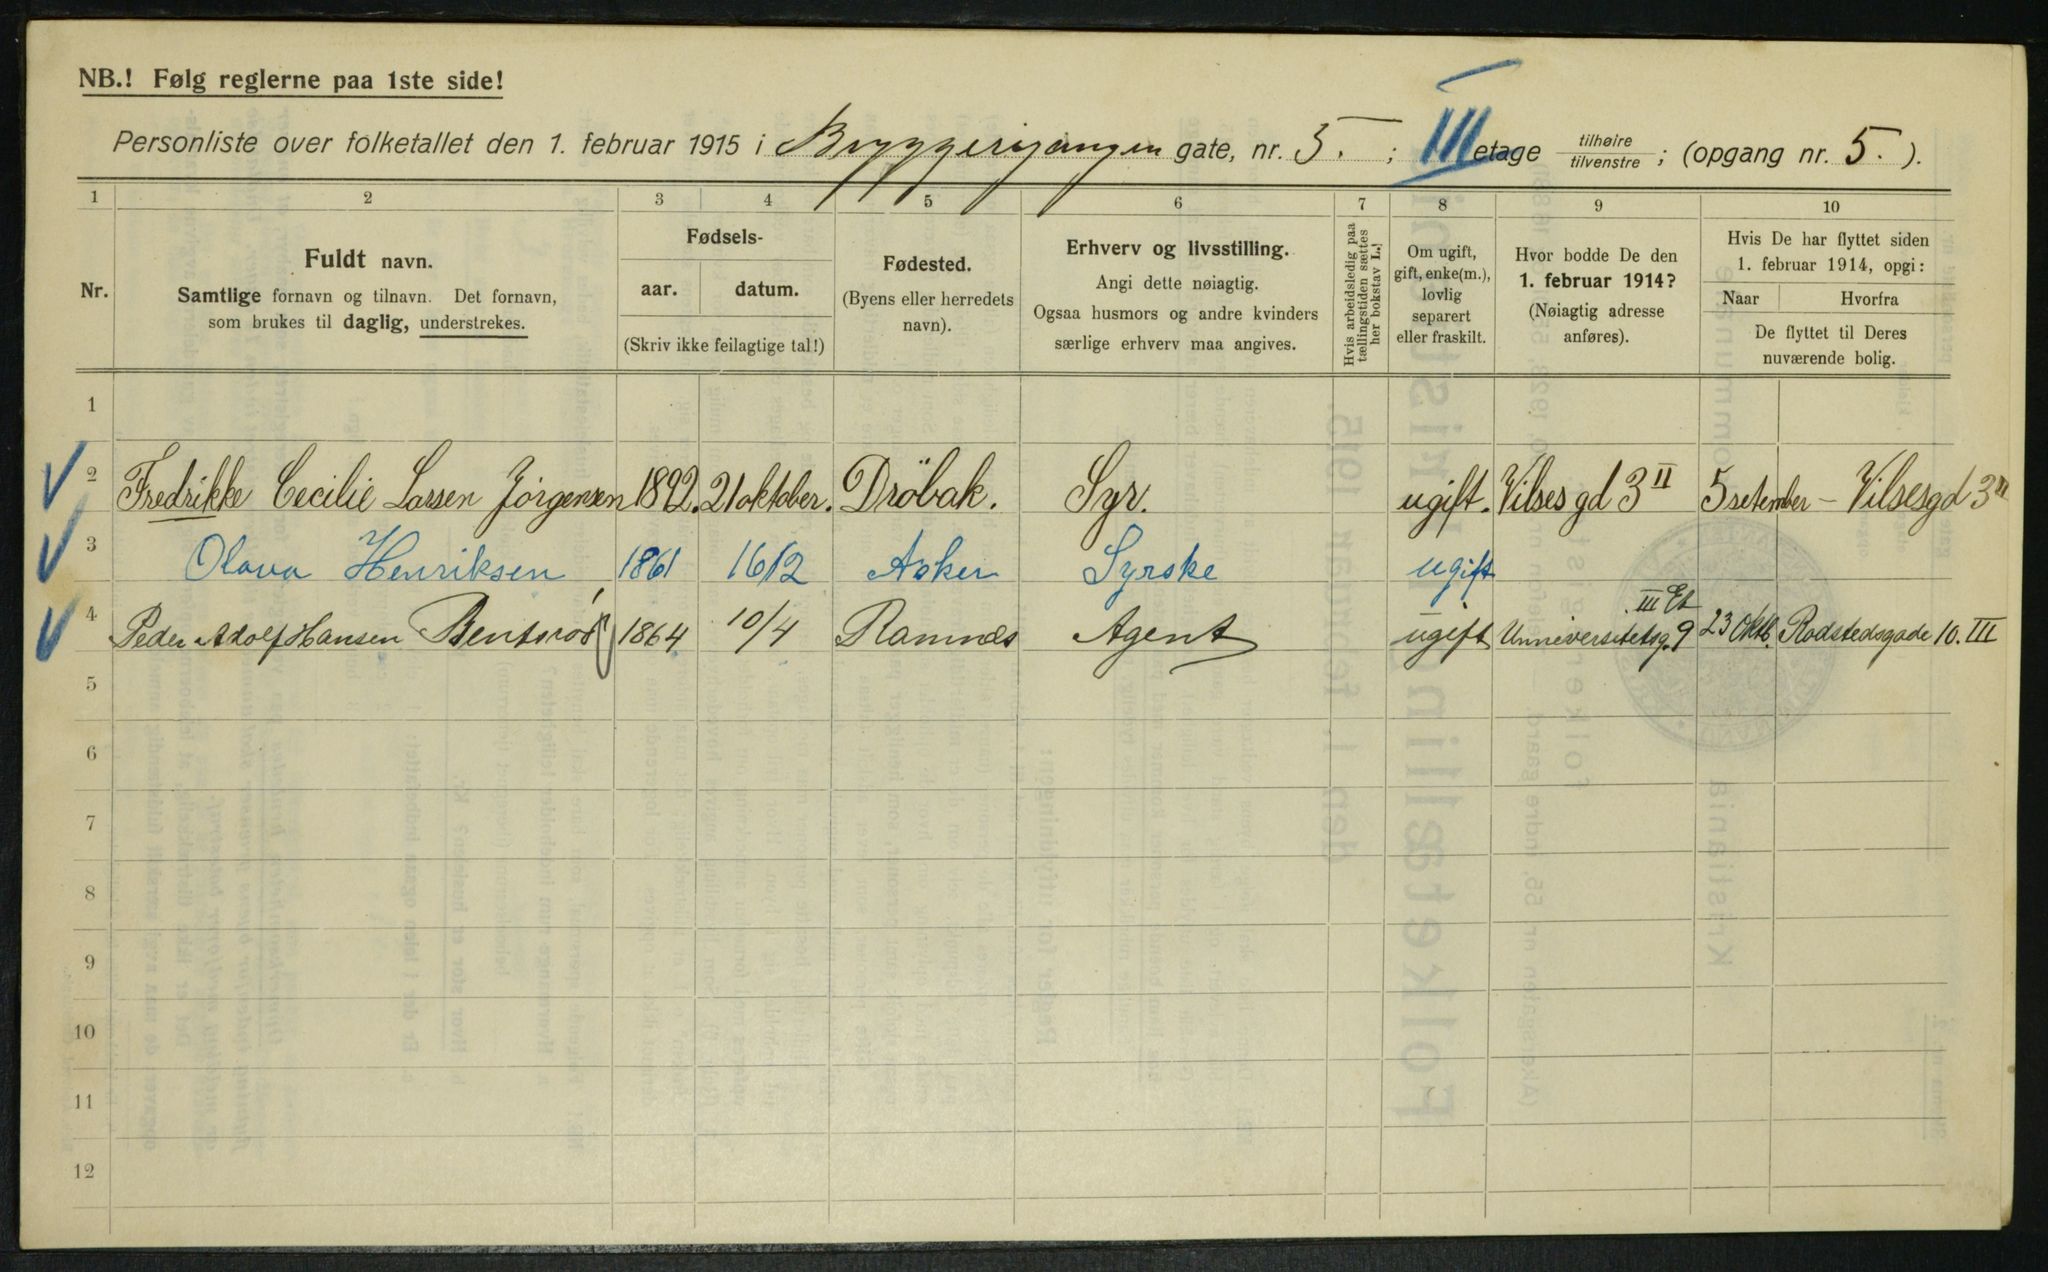 NB.! Følg reglerne paa 1ste side!
Personliste over folketallet den 1. februar 1915 i Bryggerigangen gate, nr. 5. ; III etage tilhøire / tilvenstre ; (opgang nr. 5. ).
1 2 3 4 5 6 7 8 9 10
Nr.
Fuldt navn.
Samtlige fornavn og tilnavn. Det fornavn,
som brukes til daglig, understrekes.
Fødsels-
aar. datum.
(Skriv ikke feilagtige tal!)
Fødested.
(Byens eller herredets
navn).
Erhverv og livsstilling.
Angi dette nøiagtig.
Ogsaa husmors og andre kvinders
særlige erhverv maa angives.
Hvis arbeidsledig paa
tællingstiden sættes
her bokstav L.!
Om ugift,
gift, enke(m.),
lovlig
separert
eller fraskilt.
Hvor bodde De den
1. februar 1914?
(Nøiagtig adresse
anføres).
Hvis De har flyttet siden
1. februar 1914, opgi:
Naar Hvorfra
De flyttet til Deres
nuværende bolig.
1
2 Fredrikke Cecilie Larsen Jörgensen 1892. 21 oktober. Dröbak. Syr. ugift. Vilses gd 3 II 5 setember – Vilsesgd 3 II
3 Olava Henriksen 1861 16/12 Asker Syrske ugift
4 Peder Adolf Hansen Bentsrød 1864 10/4 Ramnes Agent ugift Unniversitetsg. 9 III Et 23 Oktb. Rodstedsgade 10. III
5
6
7
8
9
10
11
12